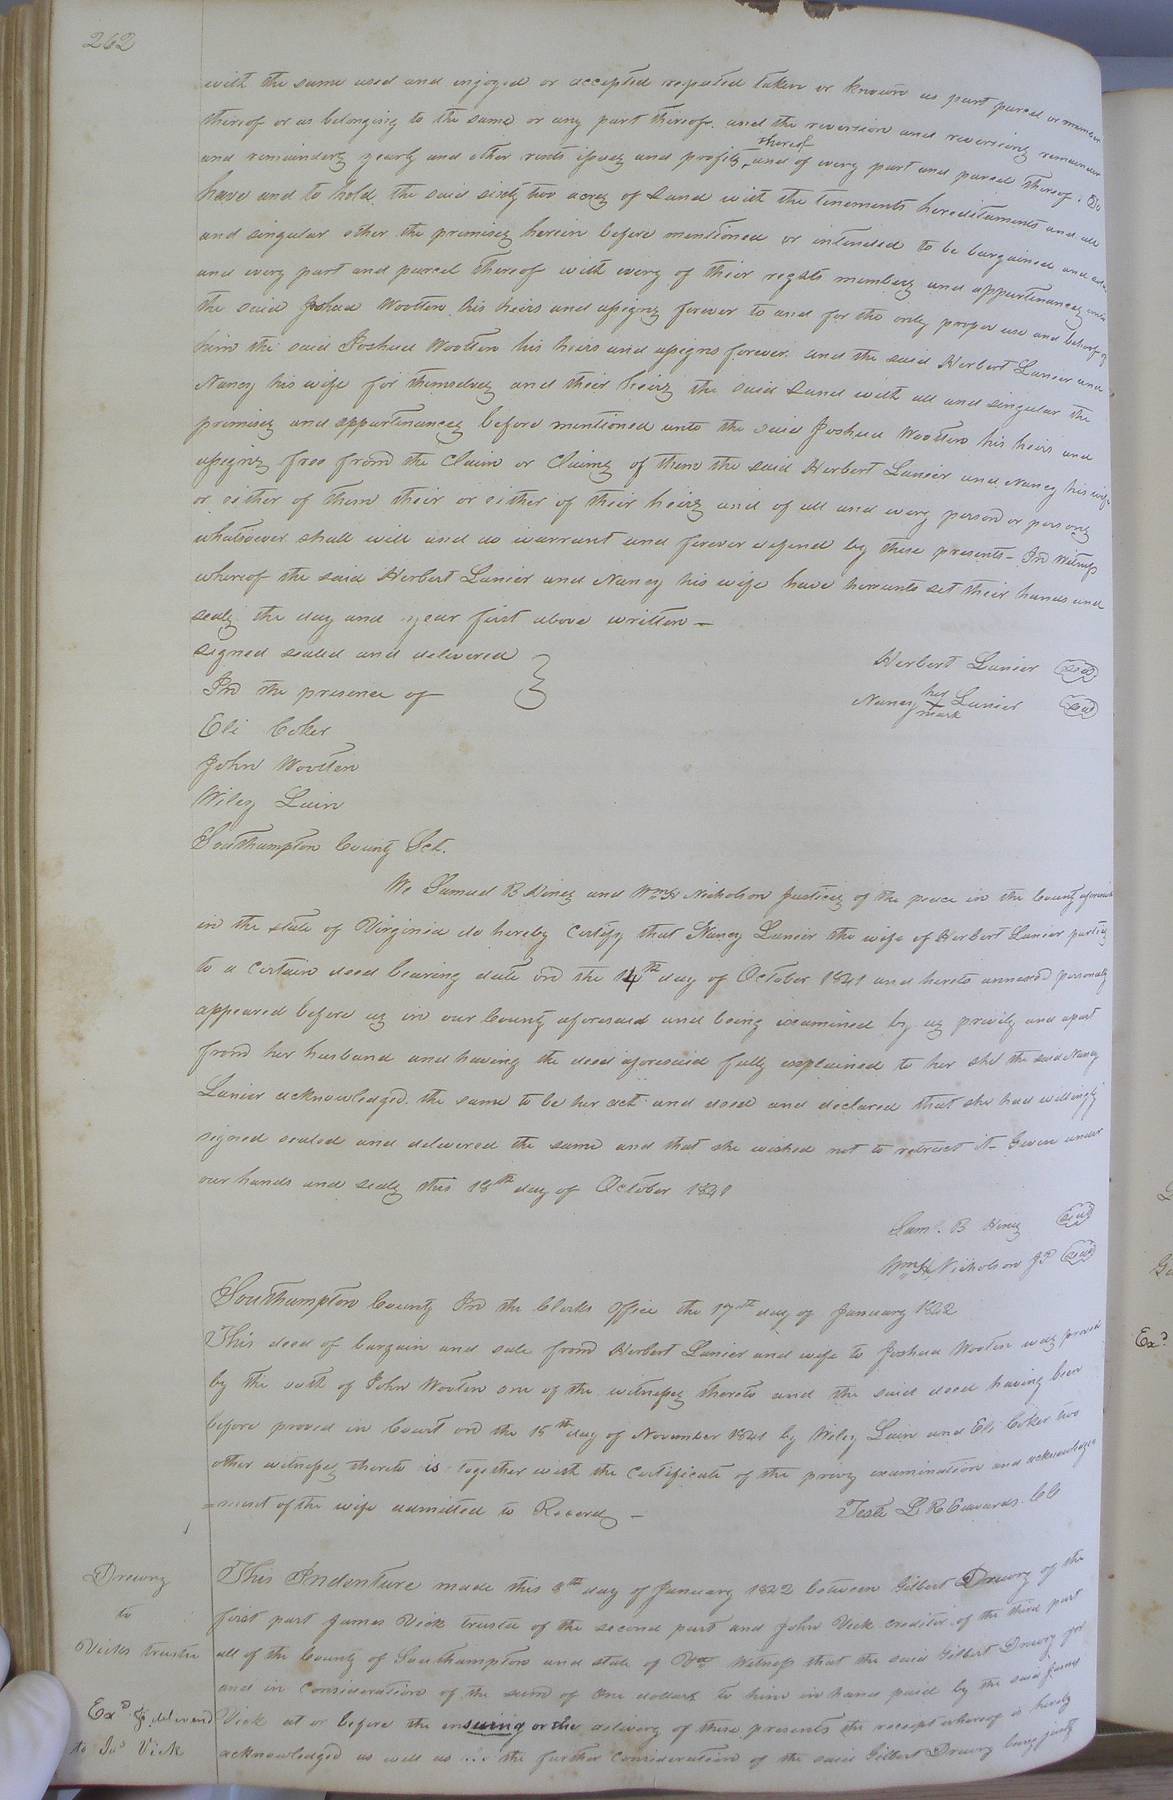 262
with the same used and enjoyed or accepted reputed taken or known as part parcel or member
thereof or as belonging to the same or any part thereof. and the reversion and reversions remainder
and remainders yearly and other rents issues and profits thereof and of every part and parcel thereof. To
have and to hold the said sixty two acres of Land with the tenements hereditaments and all
and singular other the premises herein before mentioned or intended to be bargained and
and every part and parcel thereof with every of their rights members and appurtenances unto
the said Joshua Wootten his heirs and assigns forever to and for the only proper use and behoof of
him the said Joshua Wootten his heirs and assigns forever. and the said Herbert Lanier and
Nancy his wife for themselves and their heirs the said Land with all and singular the
premises and appurtenances before mentioned unto the said Joshua Wootten his heirs and
assigns free from the Claim or Claims of them the said Herbert Lanier and Nancy his wife
or either of them their or either of their heirs and of all and every person or persons
whatsoever shall will and do warrant and forever defend by these presents - In Witness
whereof the said Herbert Lanier and Nancy his wife have hereunto set their hands and
seals the day and year first above written -
signed sealed and delivered
In the presence of
Herbert Lanier (seal)
Nancy her X mark Lanier (seal)
Eli Coker
John Wootten
Wiley Lain
Southampton County Sct.
We Samuel B Hines and Wm H Nicholson Justices of the peace in the County aforesaid
in the state of Virginia do hereby Certify that Nancy Lanier the wife of Herbert Lanier parties
to a certain deed bearing date on the 14th day of October 1821 and hereto annexed personally
appeared before us in our County aforesaid and being examined by us privily and apart
from her husband and having the deed aforesaid fully explained to her she the said Nancy
Lanier acknowledged the same to be her act and deed and declared that she had willingly
signed sealed and delivered the same and that she wished not to retract it - Given under
our hands and seals this 18th day of October 1821
Saml. B Hines (seal)
Wm H Nicholson JP (seal)
Southampton County In the Clerks Office the 17th day of January 1822
This deed of bargain and sale from Herbert Lanier and wife to Joshua Wooten was proved
by the oath of John Wooten one of the witnesses thereto and the said deed having been
before proved in Court on the 15th day of November 1821 by Wiley Lain and Eli Coker two
other witnesses thereto is together with the Certificate of the privy examination and acknowledge
=ment of the wife admitted to Record -
Teste L R Edwards CC
Drewry
to
Vicks trustee
Exd. & delivered
to Jas Vick
This Indenture made this 8th day of January 1822 between Gilbert Drewry of the
first part James Vick trustee of the second part and John Vick creditor of the third part
all of the County of Southampton and state of Va Witness that the said Gilbert Drewry for
and in Consideration of the sum of one dollars to him in hand paid by the said James
Vick at or before the ensueing or the delivery of these presents the receipt whereof is hereby
acknowledged as well as the further Consideration of the said Gilbert Drewry being justly
Exd